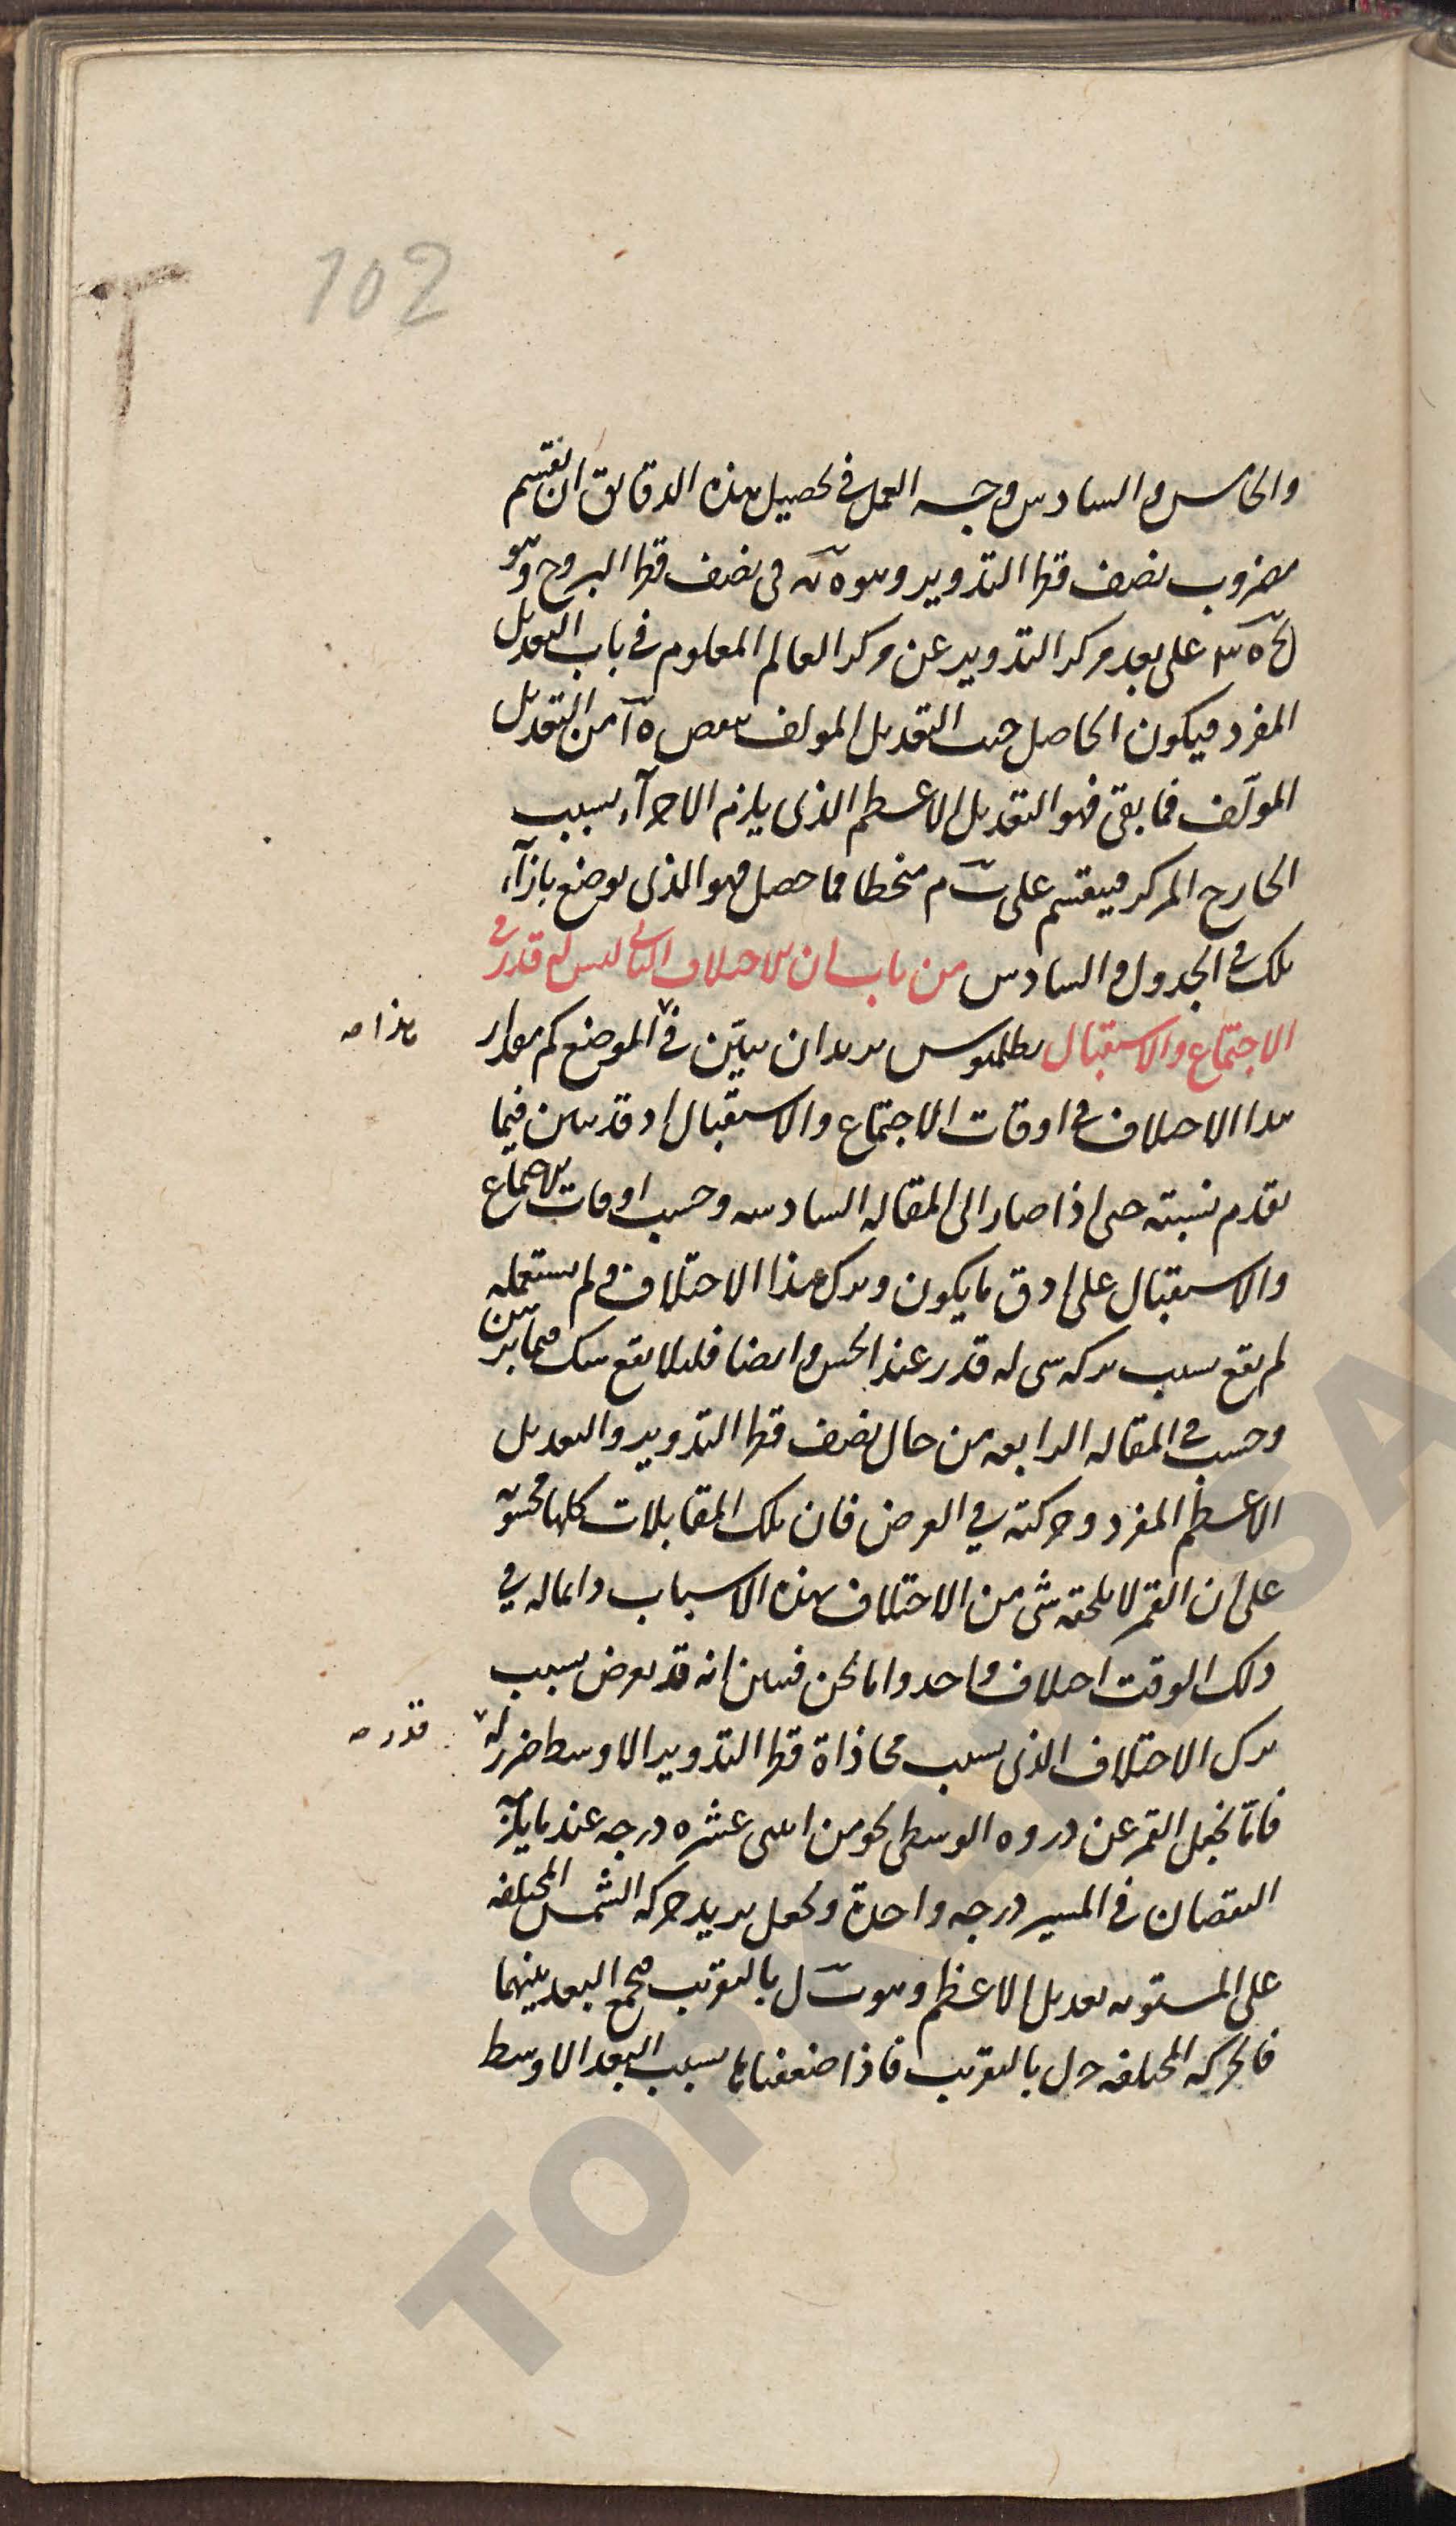 102
والخامس والسادس وجه العمل في تحصيل هذه الدقايق ان نقسم
مضروب نصف قطر التدوير وهو ه في نصف قطر البروج وهو
على بعد مركز التدوير عن مركز العالم المعلوم في باب التعديل
المفرد فيكون الحاصل جيب التعديل المولف نقص ه آ من التعديل
المولف فما بقي فهو التعديل الاعظم الذي يلزم الاجزآء بسبب
الخارج المركز فيقسم على م منحطا فما حصل فهو الذي يوضع بازآء
تلك في الجدول السادس من باب ان الاختلاف الثاني ليس له قدر في
الاجتماع والاستقبال بطلميوس يريد ان يبين في الموضع كم مقدار
هذا صه
هذا الاختلاف في اوقات الاجتماع والاستقبال اذ قد تبين فيما
تقدم نسبته حتى اذا صار الى المقاله السادسه وحسب اوقات الاجتماع
والاستقبال على ادق ما يكون وترك هذا الاختلاف ولم يستعمله
لم يقع بسبب تركه شي له قدر عند الحس وايضا فلئلا يقع شك فيما بين
وحسب في المقاله الرابعه من حال نصف قطر التدوير والتعديل
الاعظم المفرد وحركته في العرض فان تلك المقابلات كلها محسوبة
على ان القمر لا يلحقه شي من الاختلاف بهذه الاسباب وانما له في
ذلك الوقت اختلاف واحد واما نحن فنبين انه قد يعرض بسبب
ترك الاختلاف الذي بسبب محاذاة قطر التدوير الاوسط ضرر له
قدر صه
فانا نجعل القمر عن ذروه الوسطى نحو من اثني عشره درجه عند ما يلزم
النقصان في المسير درجه واحدة ونجعل يزيد حركه الشمس المختلفه
على المستويه تعديل الاعظم وهو ل بالتقريب فيجمع البعد بينهما
فالحركه المختلفه ح ل بالتقريب فاذا ضعفناها بسبب البعد الاوسط